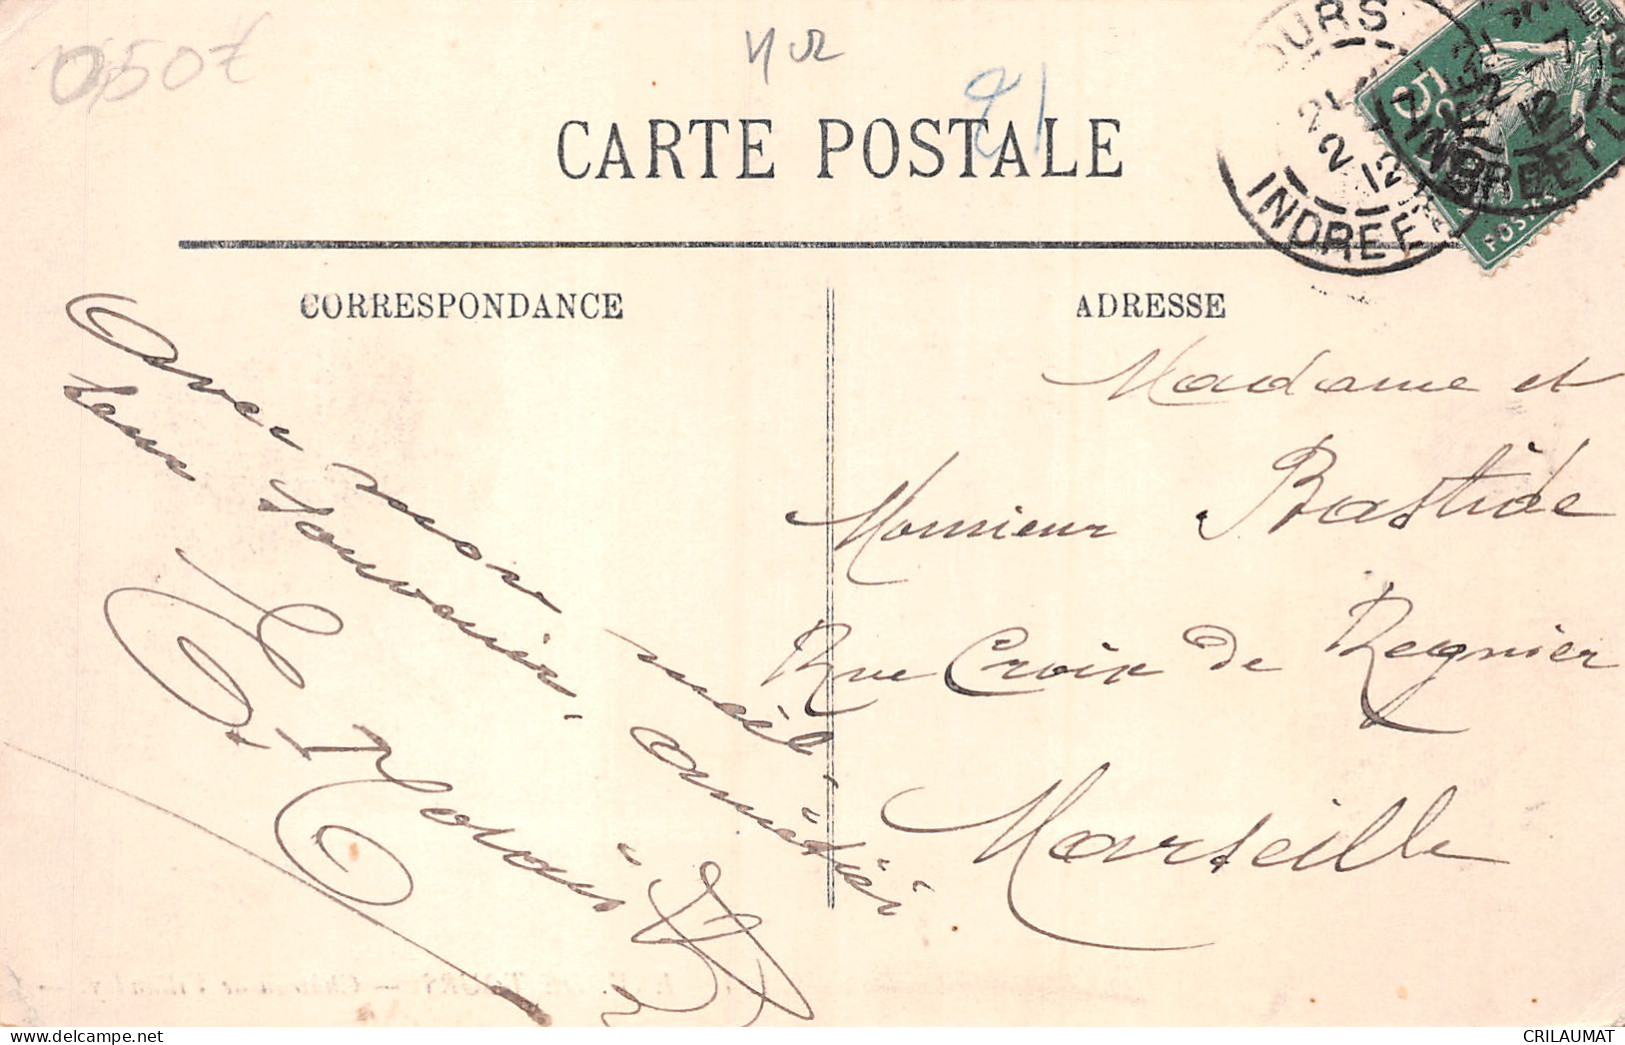 0,50 €
21
CARTE POSTALE
TOURS
21
2 12
INDRE ET L
5
POSTES
CORRESPONDANCE
ADRESSE
Avec mon meil-
leur Souvenir, amitiés
Madame et
Monsieur Bastide
Rue Croix de Regnier
Marseille
CRILAUMAT